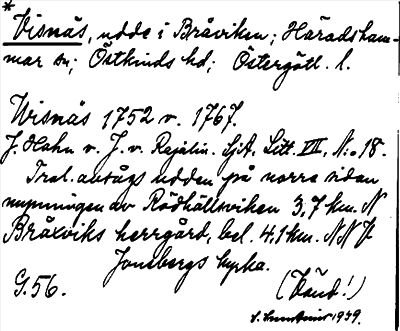 *
Visnäs, udde i Bråviken; Häradsham-
mar sn; Östkinds hd; Östergötl. l.
Wisnäs 1752 v. 1767.
J. Hahn v. J. v. Rajalin. SjA. Litt. VII, N:o 18.
Trol. avtågs udden på norra sidan
mynningen av Rödhällsviken 3,7 km. N
Bråxviks herrgård, bel. 4,1 km. NNV
Jonsbergs kyrka.
G. 56.
(Vänd!)
1939.